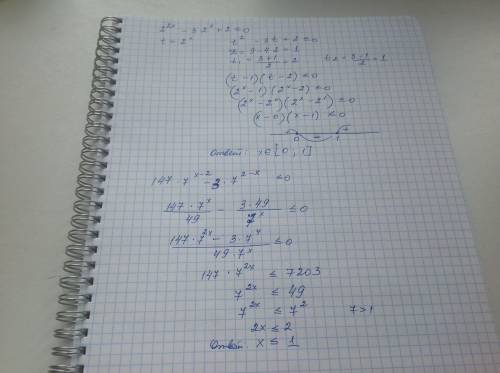 2^{2x} - 3·2^x + 2 ≤ 0
t = 2^x    t² - 3t + 2 ≤ 0
D = 9 - 4·2 = 1
t₁ = \frac{3+1}{2} = 2    t₂ = \frac{3-1}{2} = 1
(t - 1)(t - 2) ≤ 0
(2^x - 1)(2^x - 2) ≤ 0
(2^x - 2^0)(2^x - 2^1) ≤ 0
(x - 0)(x - 1) ≤ 0
0 - 1 +
Ответ: x ∈ [0, 1]
147 · 7^{x-2} - 3 · 7^{2-x} ≤ 0
\frac{147 · 7^x}{49} - \frac{3 · 49}{7^x} ≤ 0
\frac{147 · 7^{2x} - 3 · 7^4}{49 · 7^x} ≤ 0
147 · 7^{2x} ≤ 7203
7^{2x} ≤ 49
7^{2x} ≤ 7²    7 > 1
2x ≤ 2
Ответ: x ≤ 1